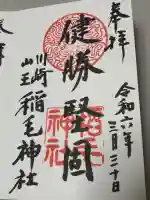 奉拝
令和六年
三月三十日
健勝堅固
川崎
山王
稲毛神社
稲毛
神社